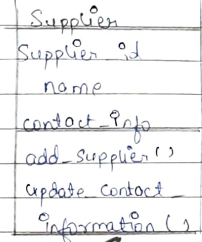 Supplier
Supplier_id
name
contact_info
add_supplier()
update_contact_
information()